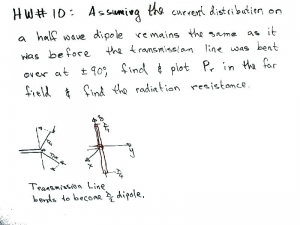 HW# 10: Assuming the current distribution on
a half wave dipole remains the same as it
was before the transmission line was bent
over at ± 90°, find & plot Pr in the far
field & find the radiation resistance.
z
y
x
Transmission Line
bends to become λ/2 dipole.